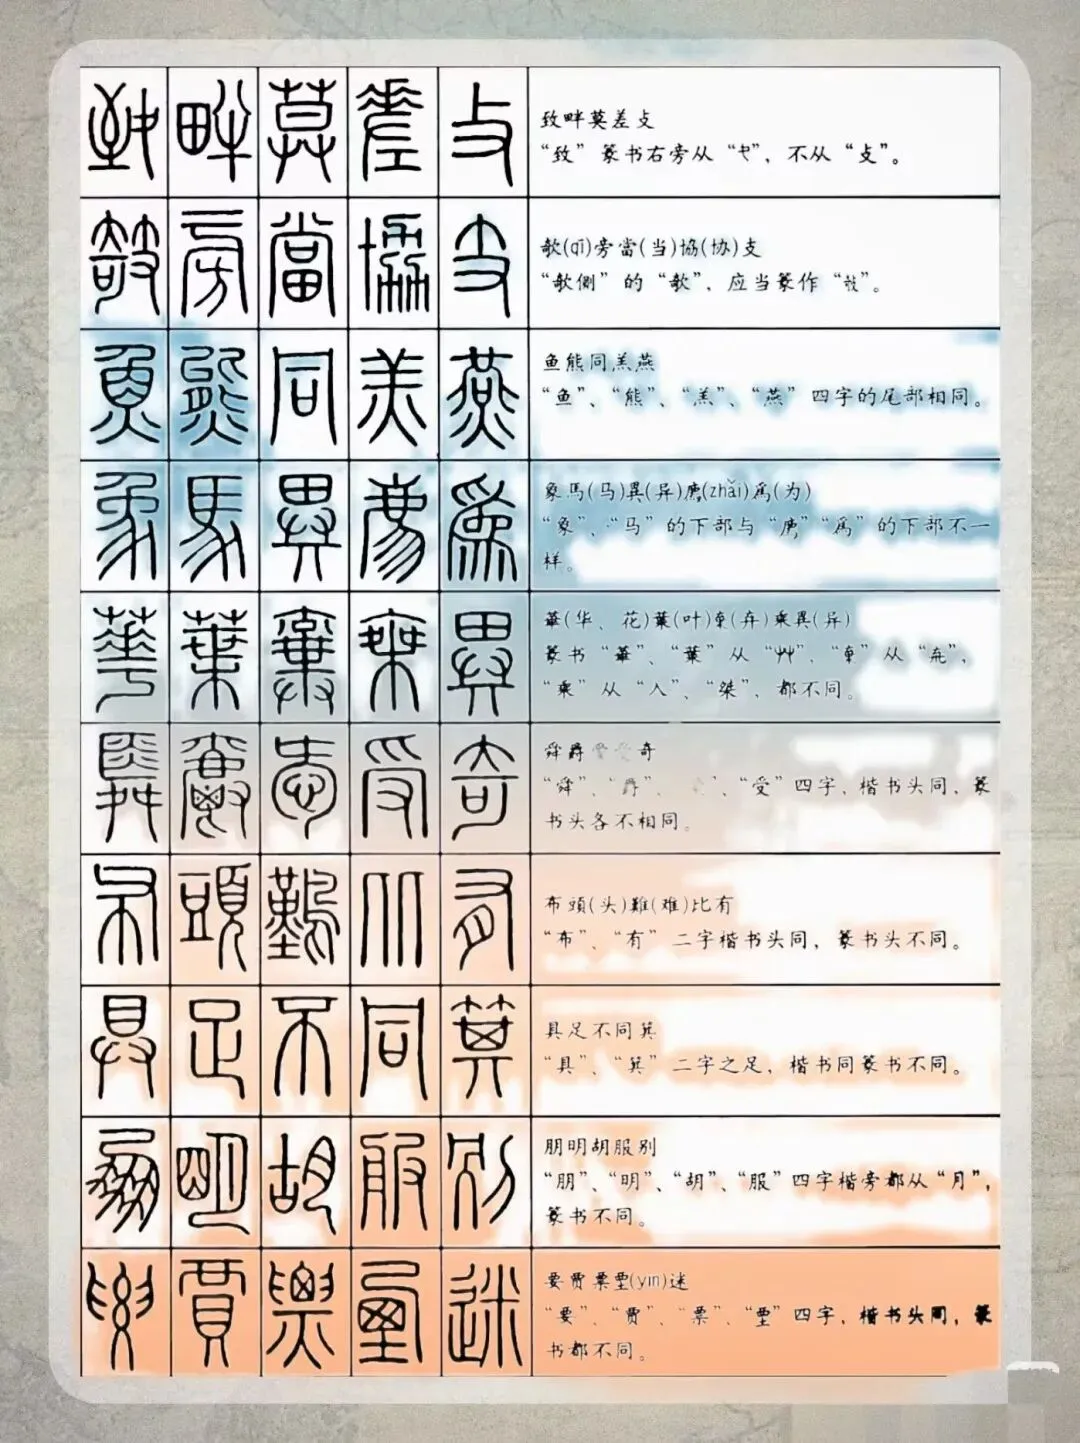 致畔莫差攴
“致”篆书右旁从“夂”，不从“攴”。
攲(qī)旁當(当)協(协)支
“攲侧”的“攲”，应当篆作“攲”。
鱼熊同羔燕
“鱼”、“熊”、“羔”、“燕”四字的尾部相同。
象馬(马)異(异)廌(zhǎi)為(为)
“象”、“马”的下部与“廌”“為”的下部不一
样。
華(华、花)葉(叶)棄(弃)乘異(异)
篆书“華”、“葉”从“艸”、“棄”从“𠫓”，
“乘”从“入”、“桀”，都不同。
舜爵愛受奇
“舜”、“爵”、 “受”四字，楷书头同，篆
书头各不相同。
布頭(头)難(难)比有
“布”、“有”二字楷书头同，篆书头不同。
具足不同箕
“具”、“箕”二字之足，楷书同篆书不同。
朋明胡服别
“朋”、“明”、“胡”、“服”四字楷旁都从“月”，
篆书不同。
要贾票垔(yīn)迷
“要”、“贾”、“票”、“垔”四字，楷书头同，篆
书都不同。